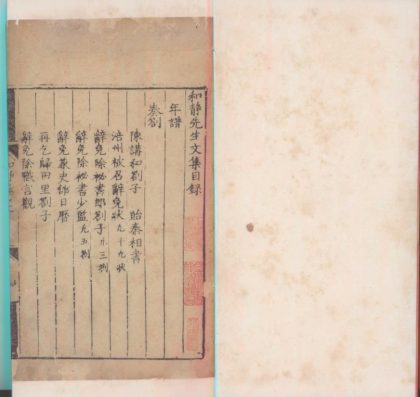 和靜先生文集目録
年譜
奏劄
陳講和劄子 貽秦相書
涪州被召辭免狀九 十九狀
辭免除秘書郎劄子 凡三劄
辭免除秘書少監 凡五劄
辭免兼史館日曆
再乞歸田里劄子
辭免除職宫觀